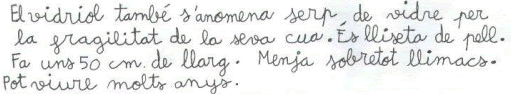 El vidriol també s'anomena serp de vidre per
la fragilitat de la seva cua. És lliseta de pell.
Fa uns 50 cm. de llarg. Menja sobretot llimacs.
Pot viure molts anys.